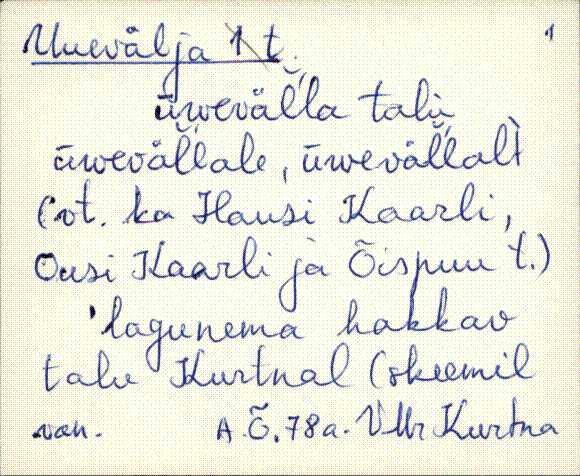 Uuevälja 1 t. 1
üwevälla talu
üwevällale, üwevällalt
(vt. ka Hansi Kaarli,
Ousi Kaarli ja Õispuu t.)
'lagunema hakkav
talu Kurtnal (skeemil
van. A.Õ.78a. VMr Kurtna